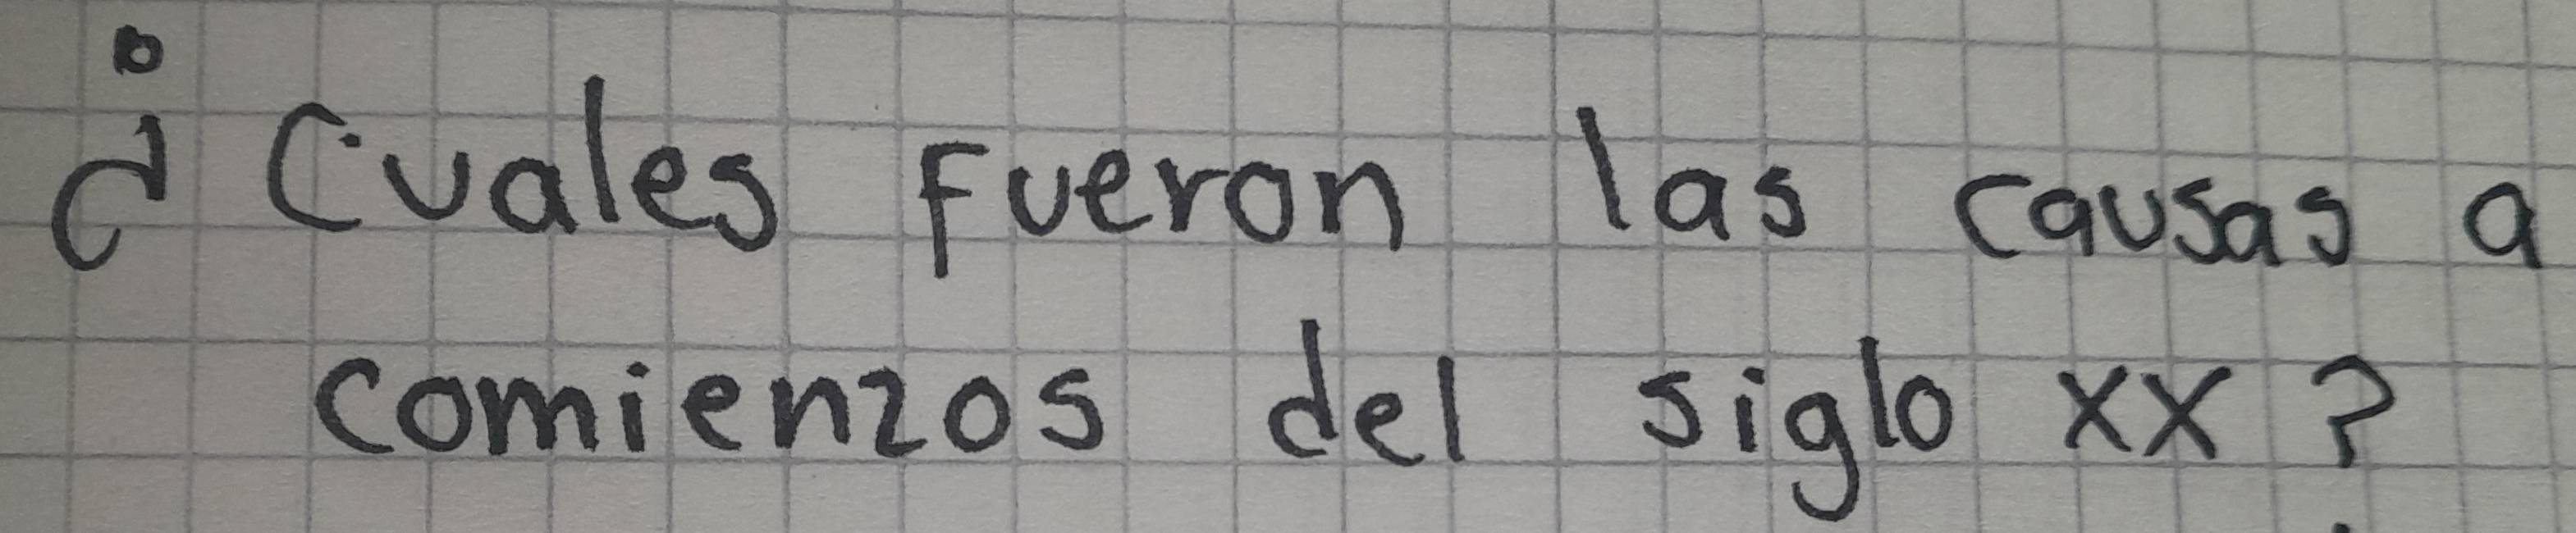 ¿Cuales fueron las causas a
comienzos del siglo xx?